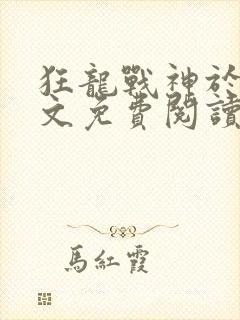 狂龍戰神於
文免費閱讀
馬紅霞